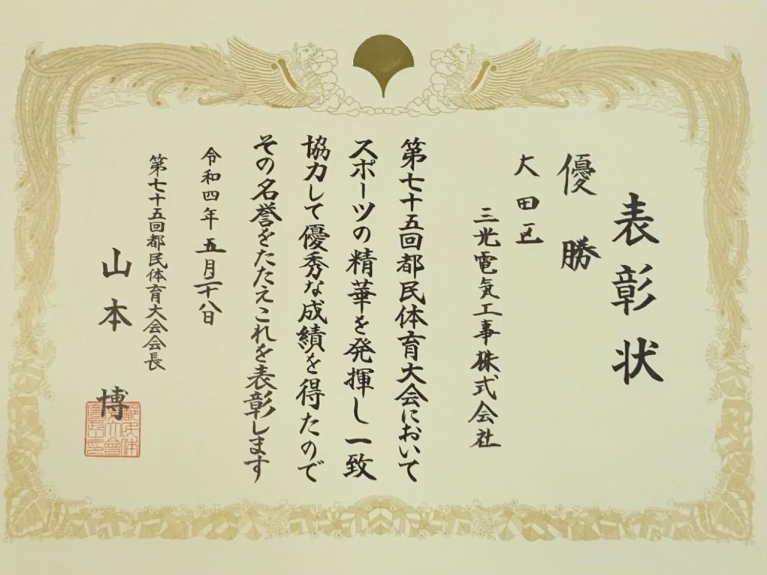 表彰状
優勝
大田区
三光電気工事株式会社
第七十五回都民体育大会において
スポーツの精華を発揮し一致
協力して優秀な成績を得たので
その名誉をたたえこれを表彰します
令和四年五月二十八日
第七十五回都民体育大会会長
山本 博